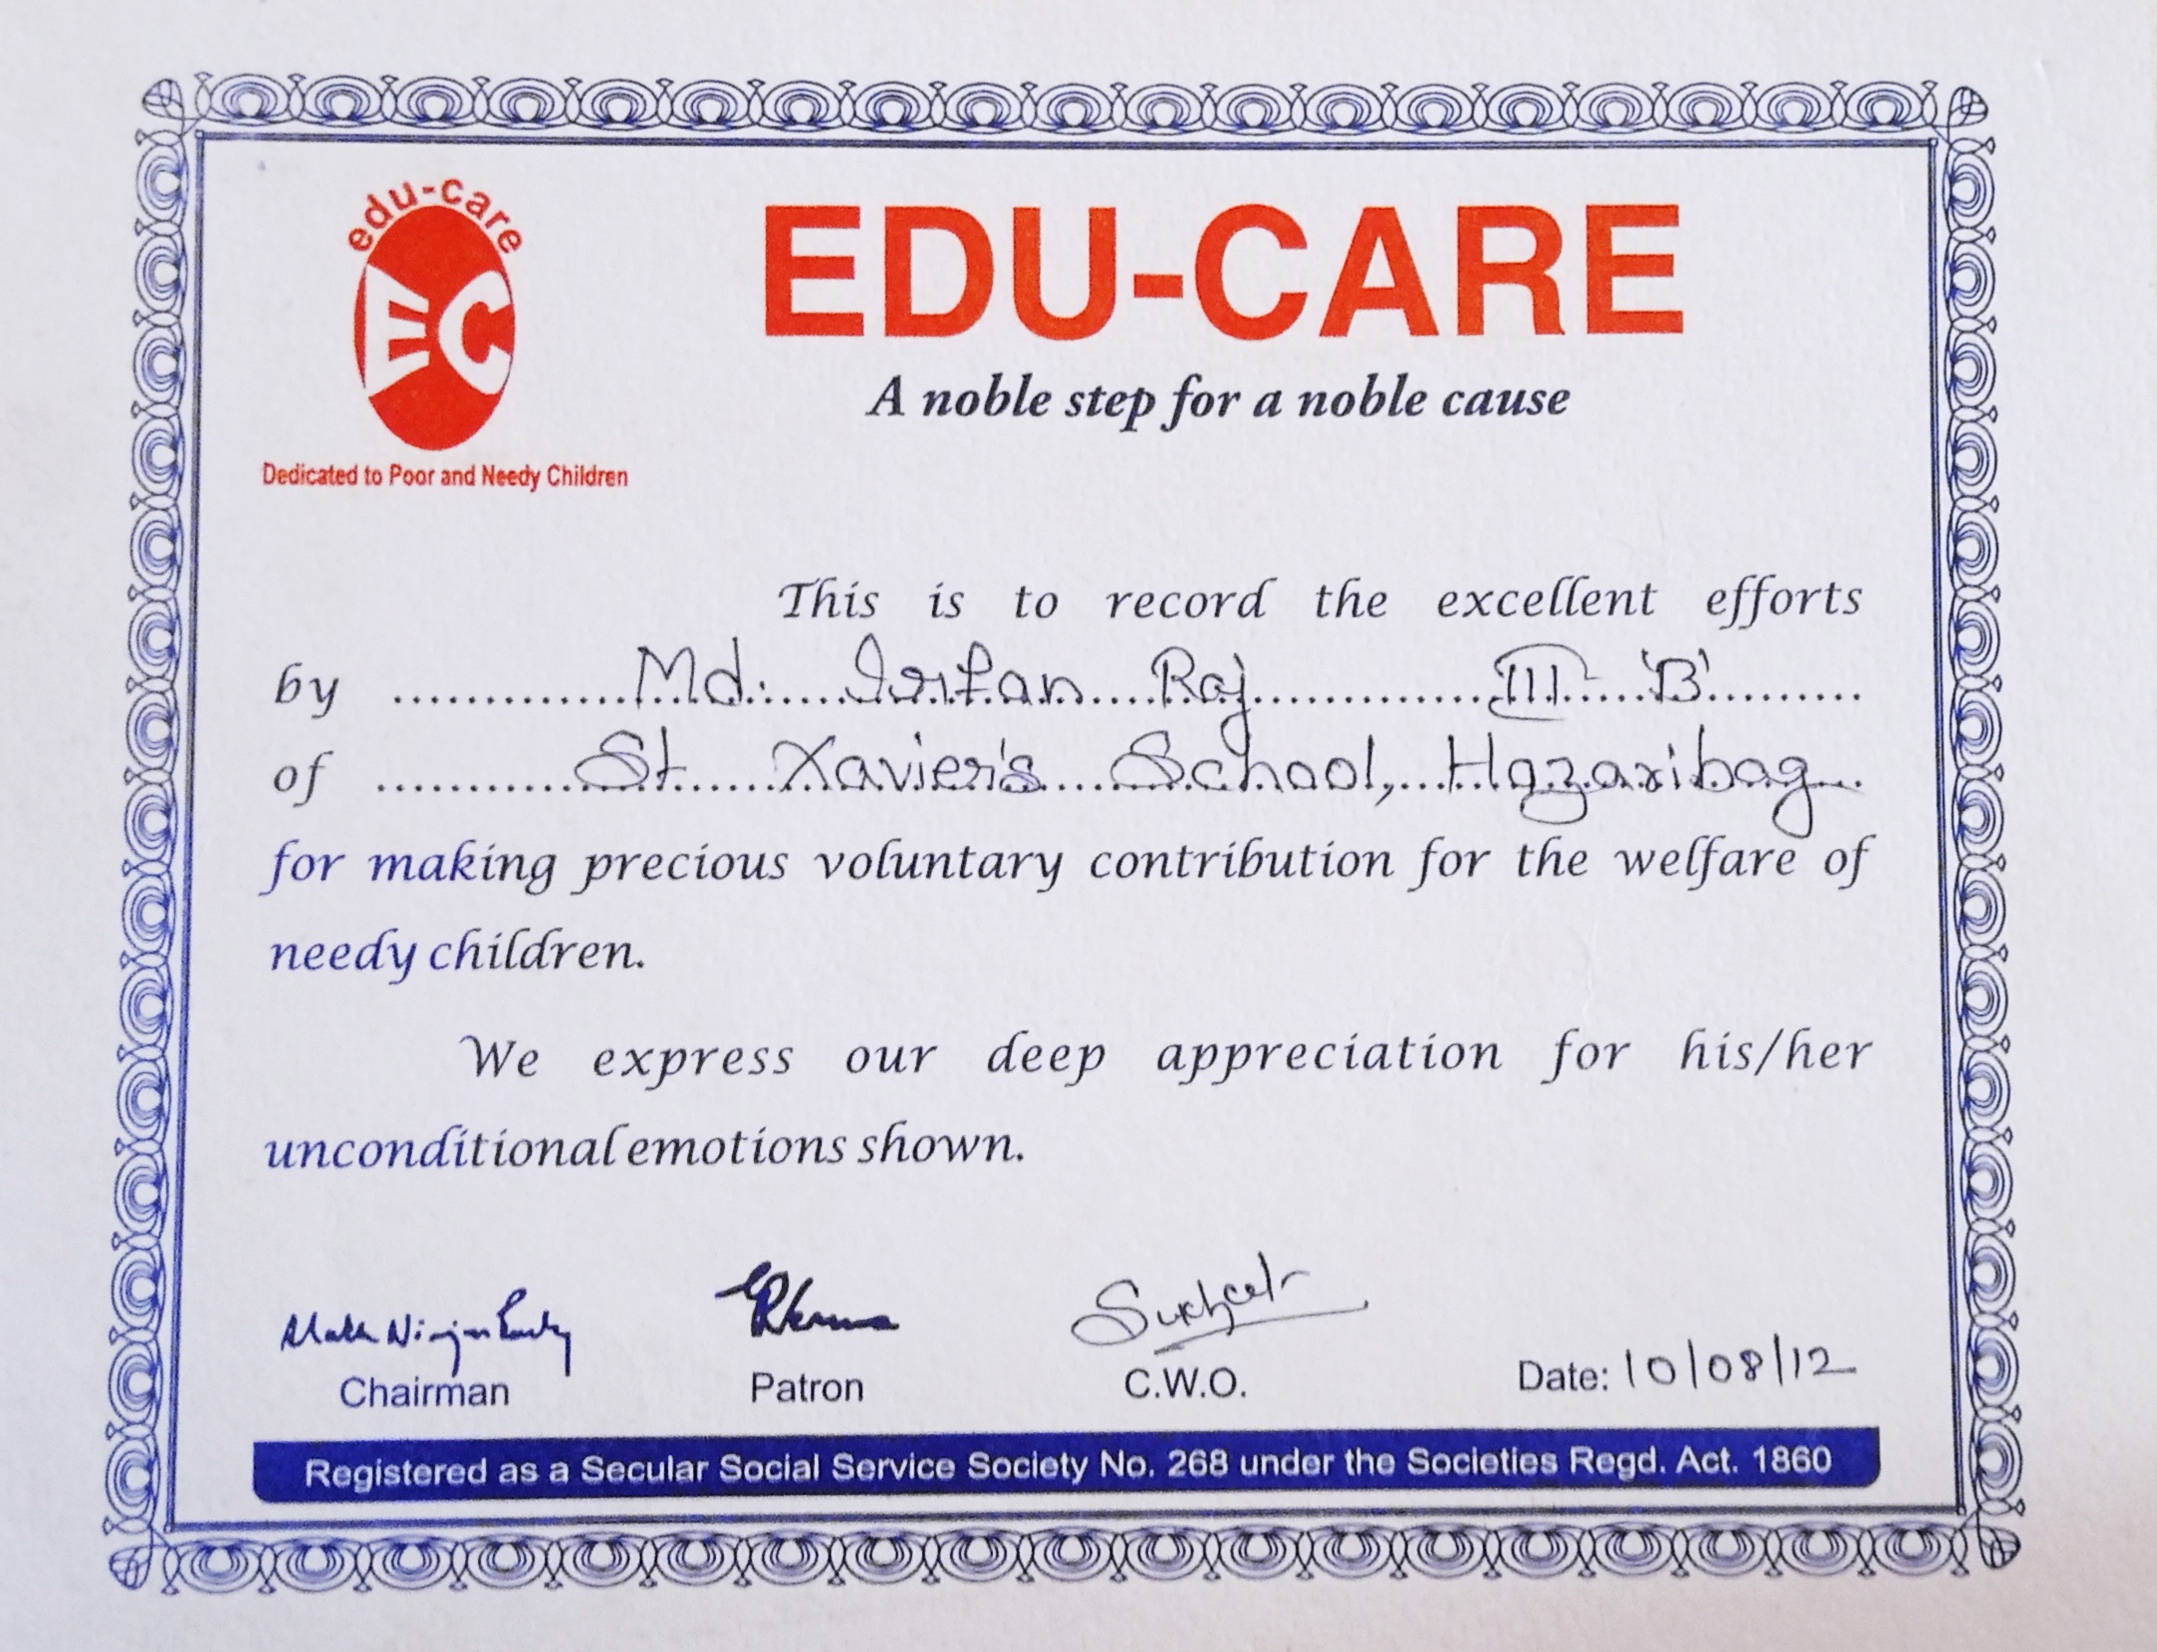 edu-care
EC
Dedicated to Poor and Needy Children
EDU-CARE
A noble step for a noble cause
This is to record the excellent efforts
by .............Md. Irfan Raj.............III 'B'.........
of ............St. Xavier's School, Hazaribag...
for making precious voluntary contribution for the welfare of
needy children.
We express our deep appreciation for his/her
unconditional emotions shown.
Chairman
Patron
C.W.O.
Date: 10/08/12
Registered as a Secular Social Service Society No. 268 under the Societies Regd. Act. 1860